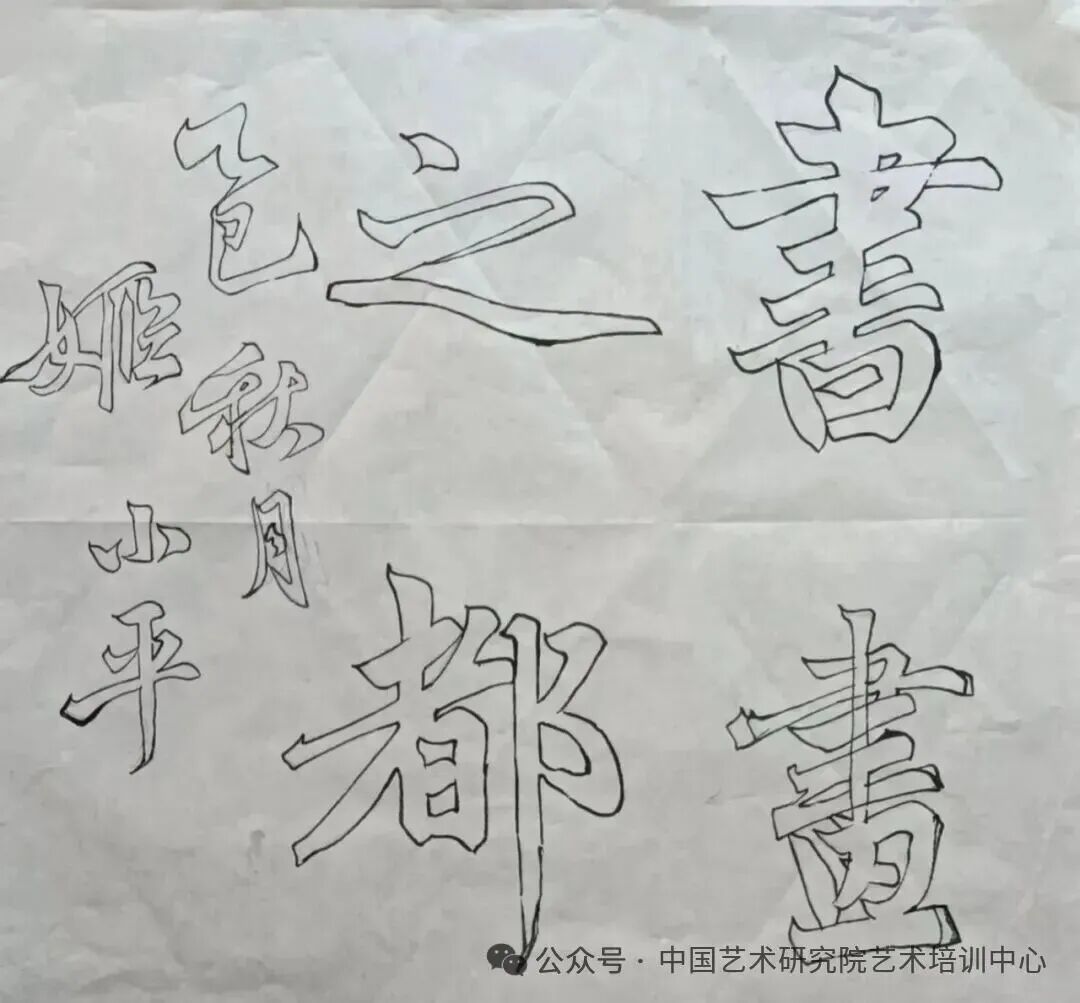 書畫
之都
乙巳秋月
姬小平
公众号 · 中国艺术研究院艺术培训中心